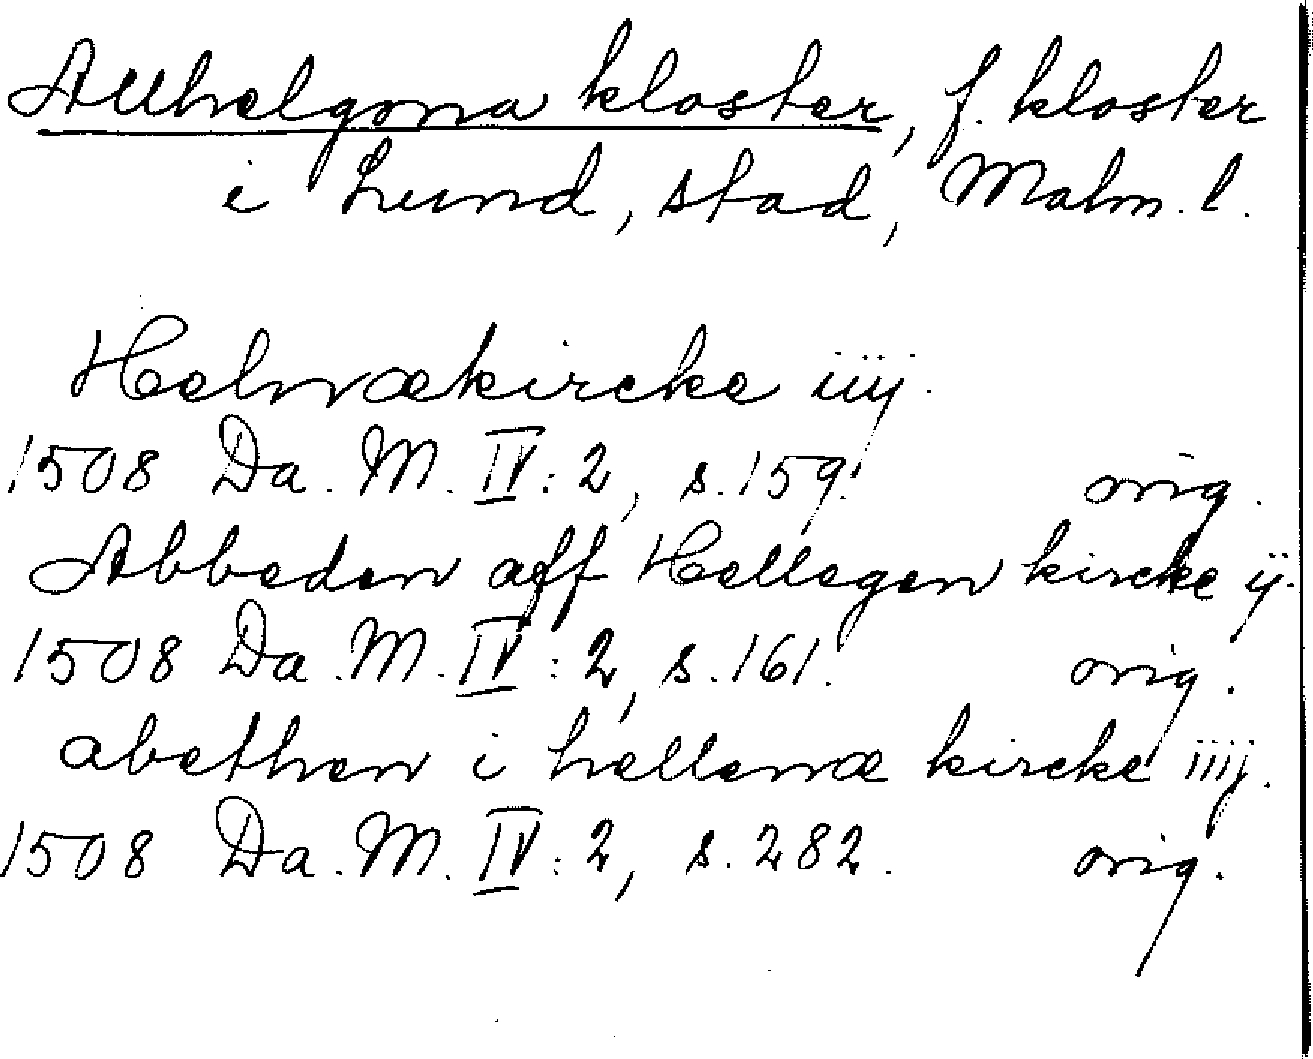 Allhelgona kloster, f. kloster
i Lund, stad, Malm. l.
Helnækircke iiij.
1508 Da. M. IV: 2, s. 159. orig.
Abbeden aff Hellegen kircke ij.
1508 Da. M. IV: 2, s. 161. orig.
abethen i hellenæ kircke iiij.
1508 Da. M. IV: 2, s. 282. orig.